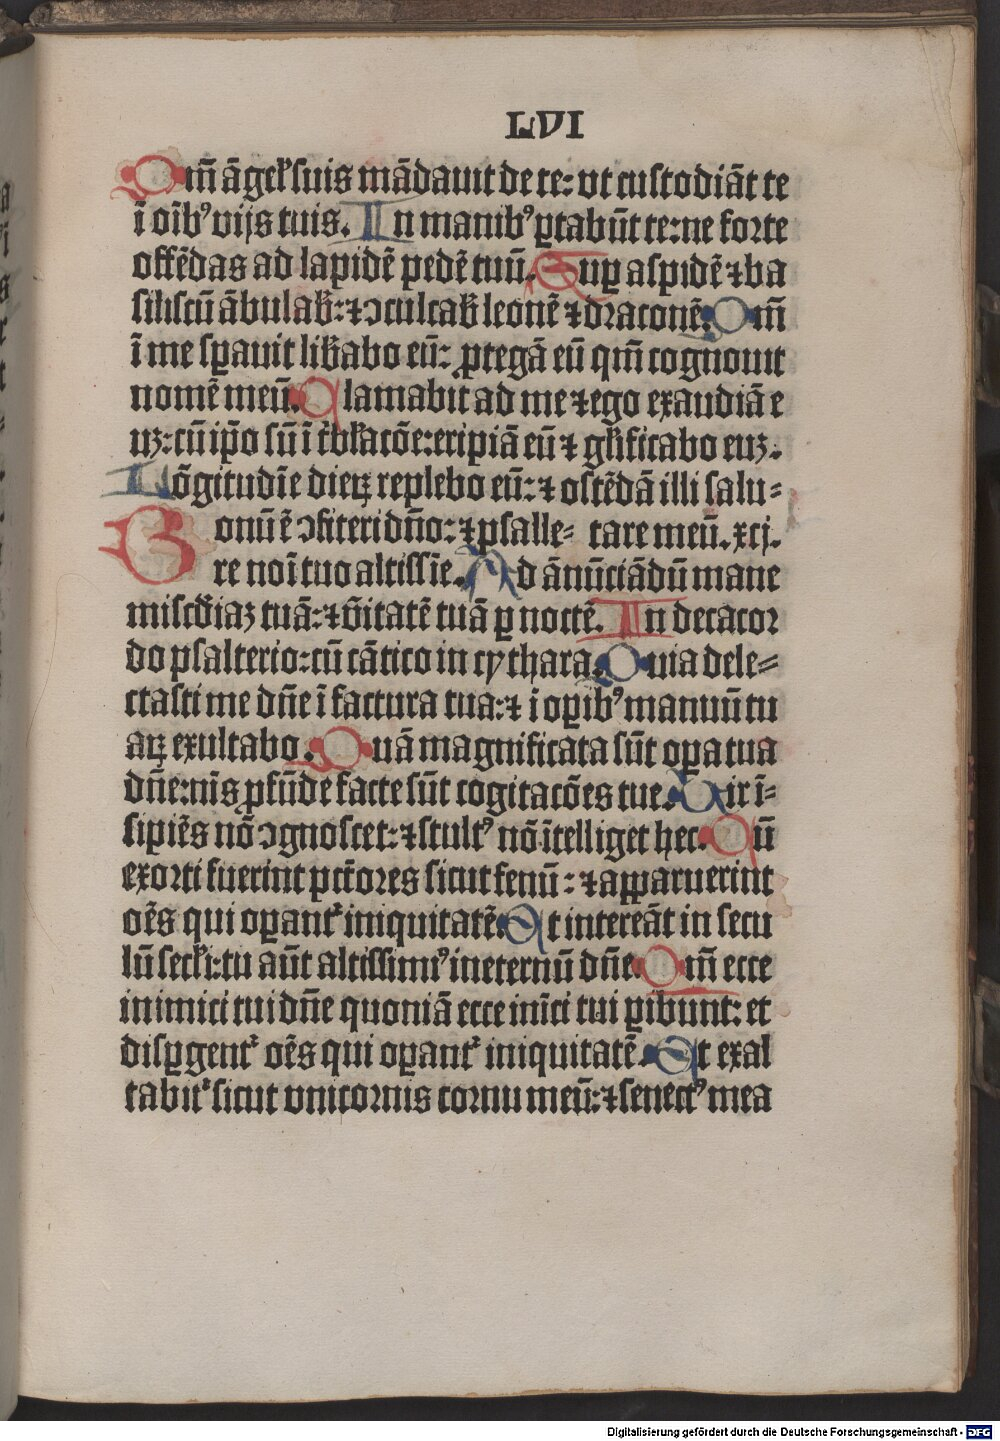 LVI
Qm̄ āgeƚ suis mādauit de te: vt custodiāt te
ī oībꝰ vijs tuis. In manibꝰ ꝑtabūt te: ne forte
offēdas ad lapidē pedē tuū. Suꝑ aspidē ⁊ ba
siliscū ābulab̄: ⁊ ↄculcab̄ leonē ⁊ draconē. Qm̄
ī me sꝑauit lib̄abo eū: ꝓtegā eū qm̄ cognouit
nomē meū. Clamabit ad me ⁊ ego exaudiā e
uꝫ: cū ip̄o sū ī t̄bƚacōe: eripiā eū ⁊ gƚificabo euꝫ.
Lōgitudīe dieꝝ replebo eū: ⁊ ostēdā illi salu-
Bonū ē ↄfiteri dn̄o: ⁊ psalle- tare meū. xcj.
re noī tuo altissīe. Ad ānūciādū mane
miscd̄iaꝫ tuā: ⁊ v̄itatē tuā ꝑ noctē. In decacor
do psalterio: cū cātico in cythara. Quia dele-
ctasti me dn̄e ī factura tua: ⁊ ī oꝑibꝰ manuū tu
aꝝ exultabo. Quā magnificata sūt oꝑa tua
dn̄e: nīs ꝓfūde facte sūt cogitacōes tue. Vir ī-
sipiēs nō ↄgnoscet: ⁊ stultꝰ nō ītelliget hec. Cū
exorti fuerint pctōres sicut fenū: ⁊ apparuerint
oēs qui oꝑant᷑ iniquitatē. Et intereāt in secu
lū secƚi: tu aūt altissimꝰ ineternū dn̄e. Qm̄ ecce
inimici tui dn̄e quoniā ecce inīci tui ꝑibunt: et
disꝑgent᷑ oēs qui oꝑant᷑ iniquitatē. Et exal
tabit᷑ sicut vnicornis cornu meū: ⁊ senectꝰ mea
Digitalisierung gefördert durch die Deutsche Forschungsgemeinschaft - DFG